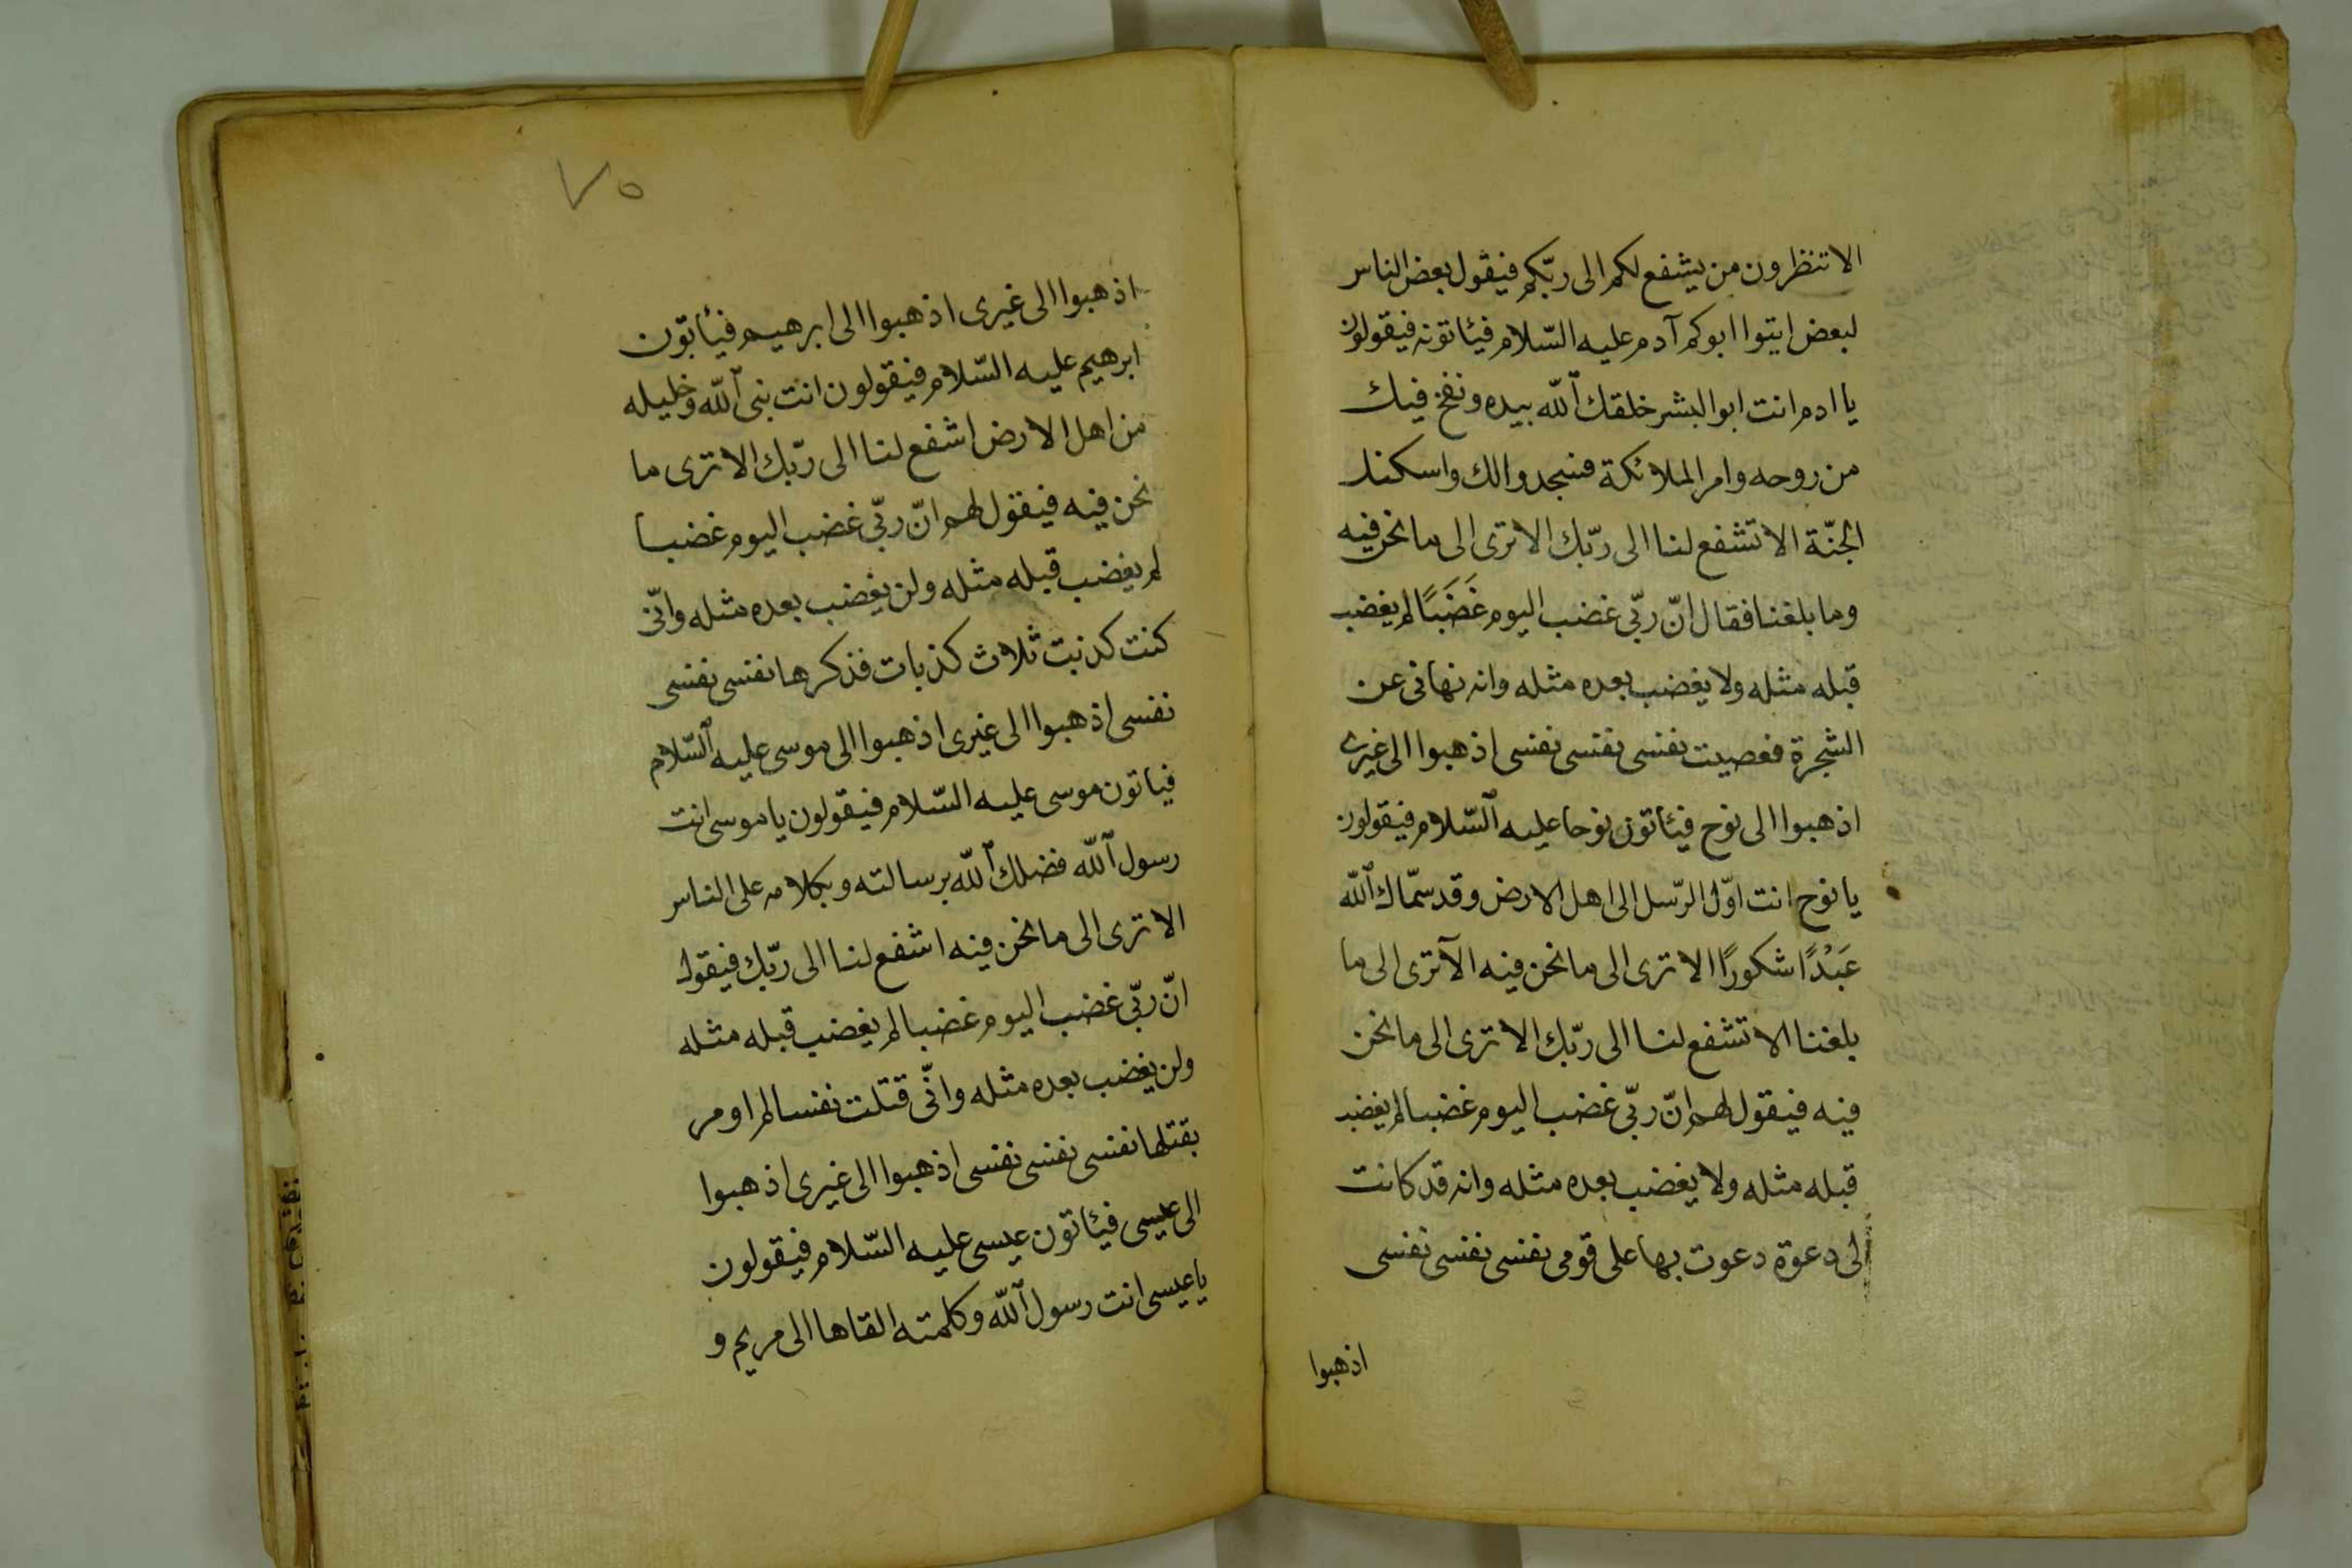 الا تنظرون من يشفع لكم الى ربّكم فيقول بعض الناس
لبعض ايتوا ابوكم آدم عليه السّلام فيئاتونه فيقولون
يا ادم انت ابو البشر خلقك الله بيده ونفخ فيك
من روحه وامر الملائكة فسجدوا لك واسكنك
الجنّة الا تشفع لنا الى ربّك الا ترى الى ما نحن فيه
وما بلغنا فقال انّ ربّى غضب اليوم غَضَبًا لم يغضب
قبله مثله ولا يغضب بعده مثله وانه نهانى عن
الشجرة فعصيت نفسى نفسى نفسى اذهبوا الى غيرى
اذهبوا الى نوح فيئاتون نوحا عليه السّلام فيقولون
يا نوح انت اوّل الرّسل الى اهل الارض وقد سمّاك الله
عَبْدًا شكورًا الا ترى الى ما نحن فيه الآ ترى الى ما
بلغنا الا تشفع لنا الى ربّك الا ترى الى ما نحن
فيه فيقول لهم انّ ربّى غضب اليوم غضبا لم يغضب
قبله مثله ولا يغضب بعده مثله وانه قد كانت
لى دعوة دعوت بها على قومى نفسى نفسى نفسى
اذهبوا
٧٥
اذهبوا الى غيرى اذهبوا الى ابرهيم فيئاتون
ابرهيم عليه السّلام فيقولون انت نبى الله وخليله
من اهل الارض اشفع لنا الى ربّك الا ترى ما
نحن فيه فيقول لهم انّ ربّى غضب اليوم غضبا
لم يغضب قبله مثله ولن يغضب بعده مثله وانّى
كنت كذبت ثلاث كذبات فذكرها نفسى نفسى
نفسى اذهبوا الى غيرى اذهبوا الى موسى عليه السّلام
فياتون موسى عليه السّلام فيقولون يا موسى انت
رسول الله فضلك الله برسالته وبكلامه على الناس
الا ترى الى ما نحن فيه اشفع لنا الى ربّك فيقول
انّ ربّى غضب اليوم غضبا لم يغضب قبله مثله
ولن يغضب بعده مثله وانّى قتلت نفسا لم اومر
بقتلها نفسى نفسى نفسى اذهبوا الى غيرى اذهبوا
الى عيسى فيئاتون عيسى عليه السّلام فيقولون
يا عيسى انت رسول الله وكلمته القاها الى مريم و